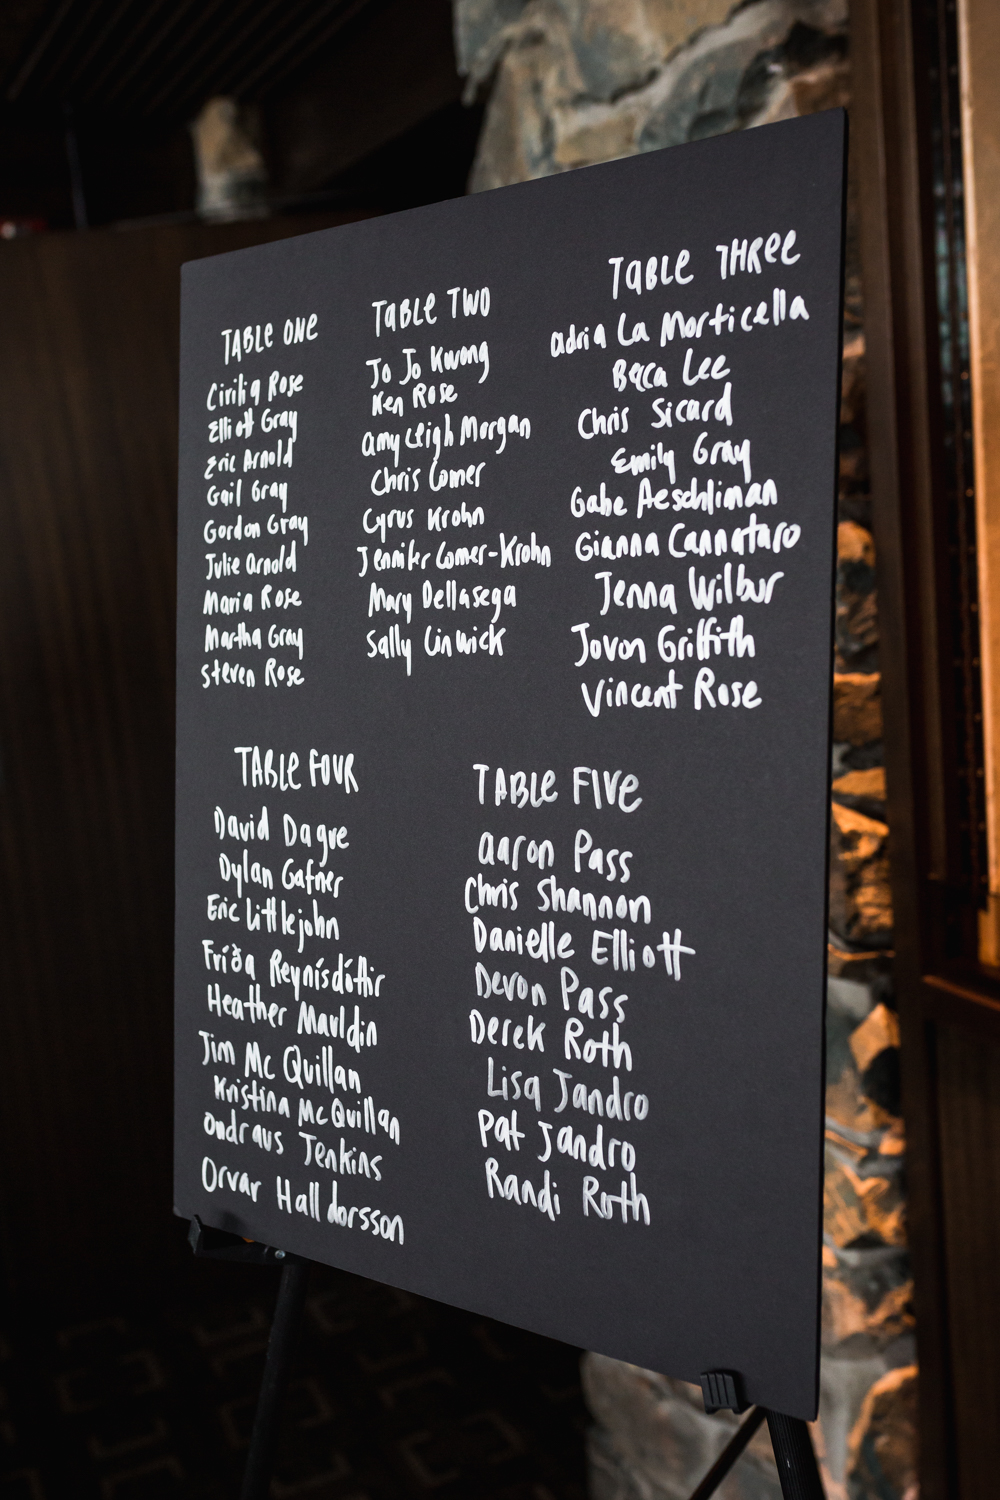 TABLE ONE
Cirilia Rose
Elliott Gray
Eric Arnold
Gail Gray
Gordon Gray
Julie Arnold
Maria Rose
Martha Gray
Steven Rose
TABLE TWO
Jo Jo Kwong
Ken Rose
Amy Leigh Morgan
Chris Comer
Cyrus Krohn
Jennifer Comer-Krohn
Mary Dellasega
Sally Linwick
TABLE THREE
adria La Morticella
Becca Lee
Chris Sicard
Emily Gray
Gabe Aeschliman
Gianna Cannataro
Jenna Wilbur
Jovon Griffith
Vincent Rose
TABLE FOUR
David Dague
Dylan Gafner
Eric Littlejohn
Fríða Reynísdóttir
Heather Mauldin
Jim McQuillan
Kristina McQuillan
Ondraus Jenkins
Orvar Halldorsson
TABLE FIVE
Aaron Pass
Chris Shannon
Danielle Elliott
Devon Pass
Derek Roth
Lisa Jandro
Pat Jandro
Randi Roth